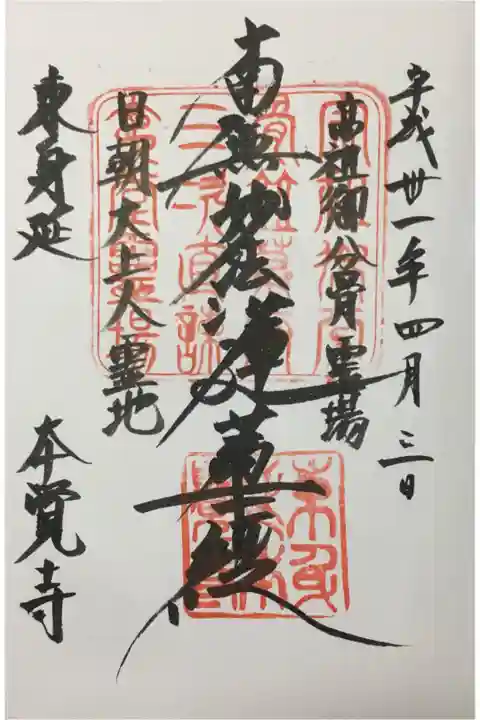 平成丗一年四月三日
高祖御分骨霊場
南無妙法蓮華経
日朝大上人霊地
東身延
本覚寺